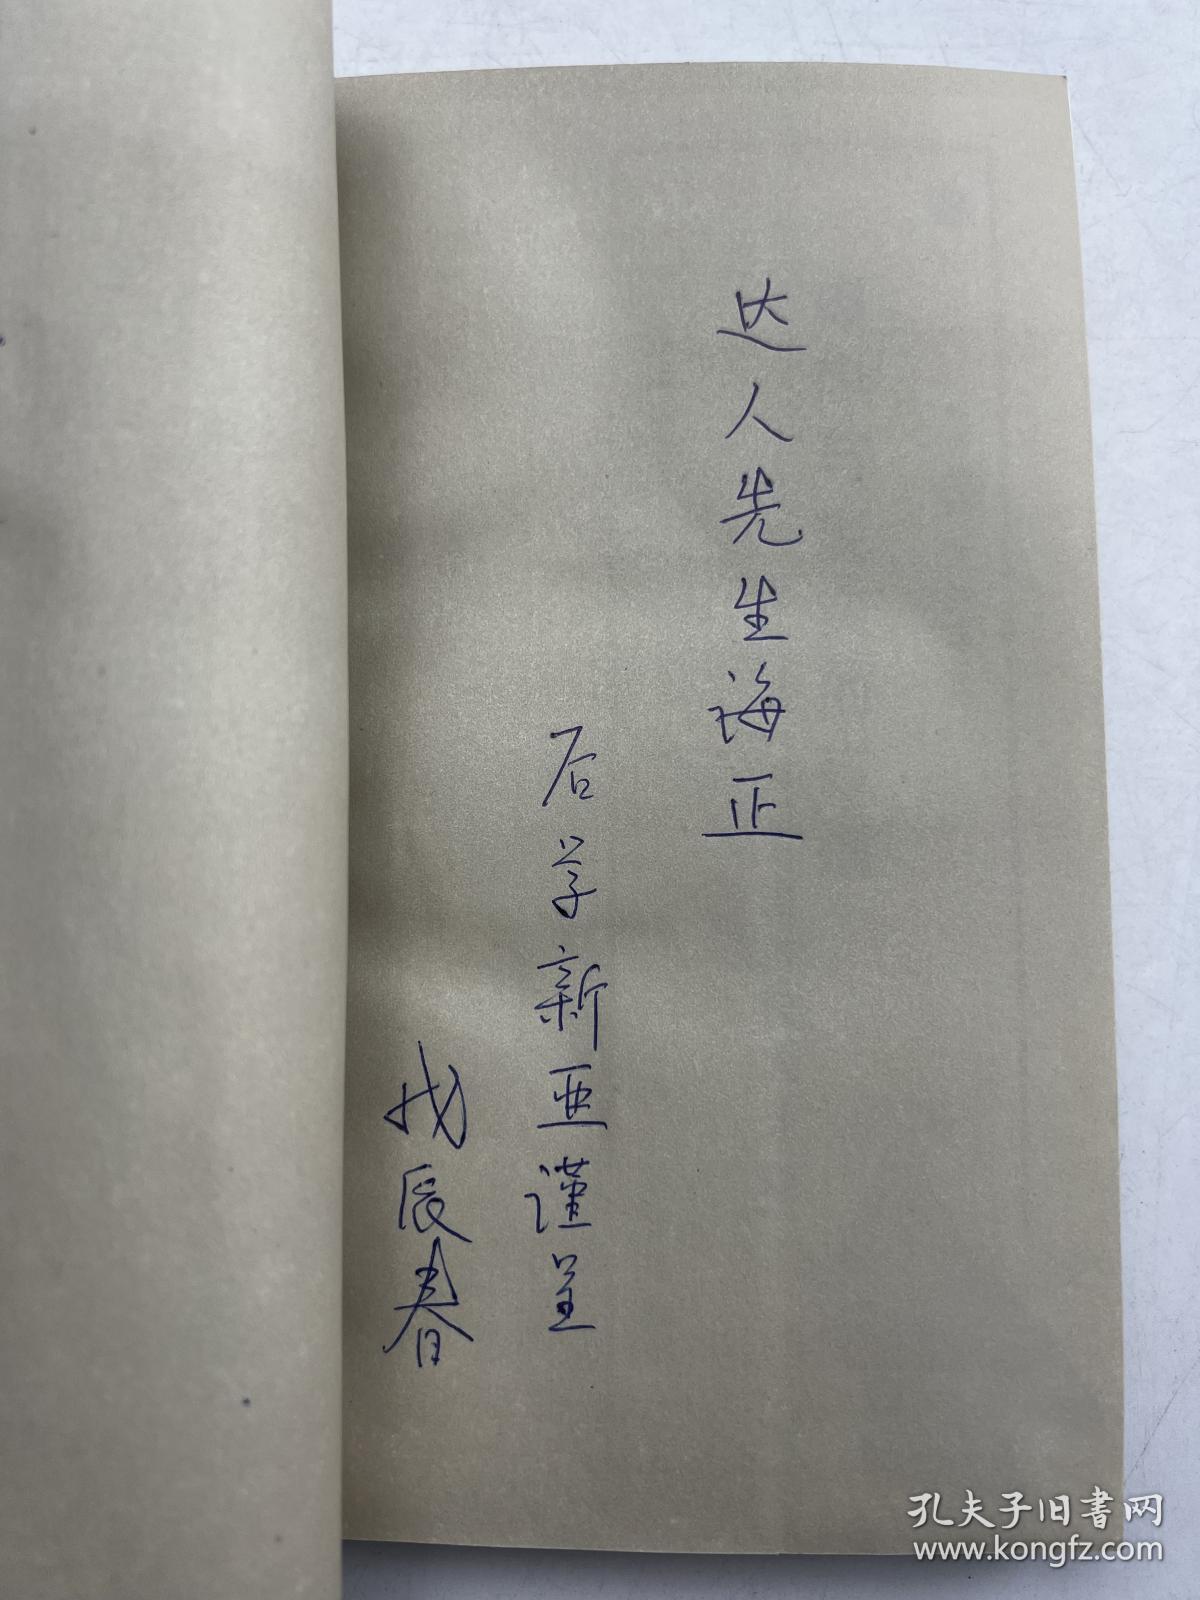 达人先生诲正
后学新亚谨呈
戊辰春
孔夫子旧書网
www.kongfz.com